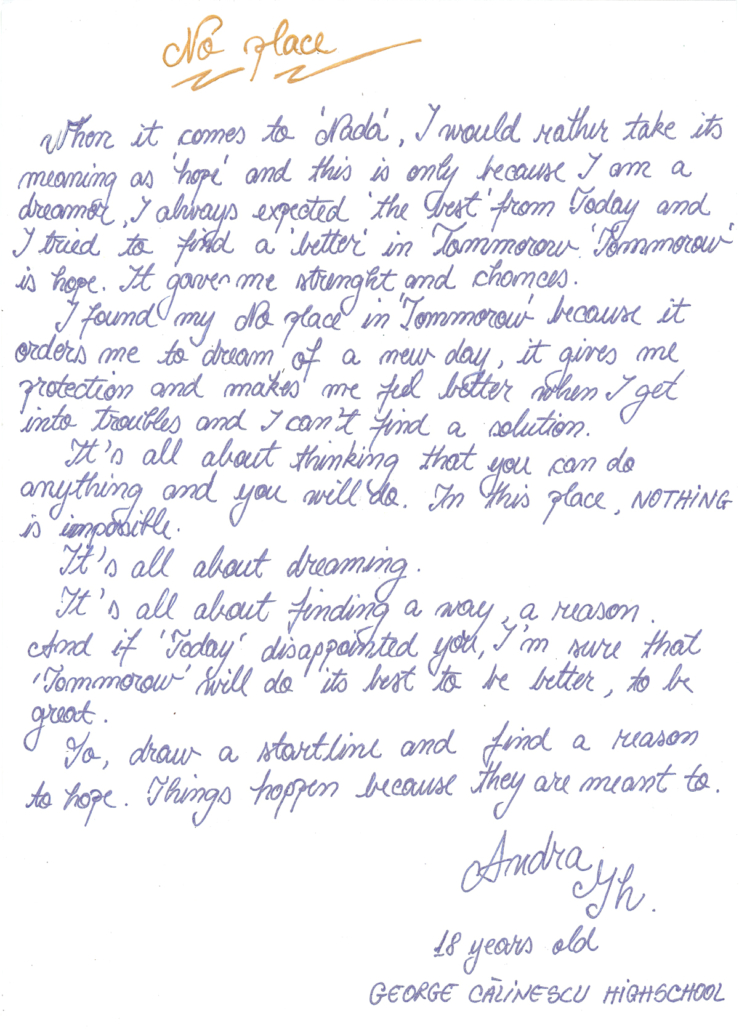 No place
When it comes to 'Nada', I would rather take its
meaning as 'hope' and this is only because I am a
dreamer, I always expected 'the best' from Today and
I tried to find a 'better' in Tommorow. 'Tommorow'
is hope. It gave me strenght and chances.
I found my No place in 'Tommorow' because it
orders me to dream of a new day, it gives me
protection and makes me feel better when I get
into troubles and I can't find a solution.
It's all about thinking that you can do
anything and you will do. In this place, NOTHING
is impossible.
It's all about dreaming.
It's all about finding a way, a reason.
And if 'Today' disappointed you, I'm sure that
'Tommorow' will do its best to be better, to be
great.
So, draw a startline and find a reason
to hope. Things happen because they are meant to.
Andra Gh.
18 years old
GEORGE CĂLINESCU HIGHSCHOOL